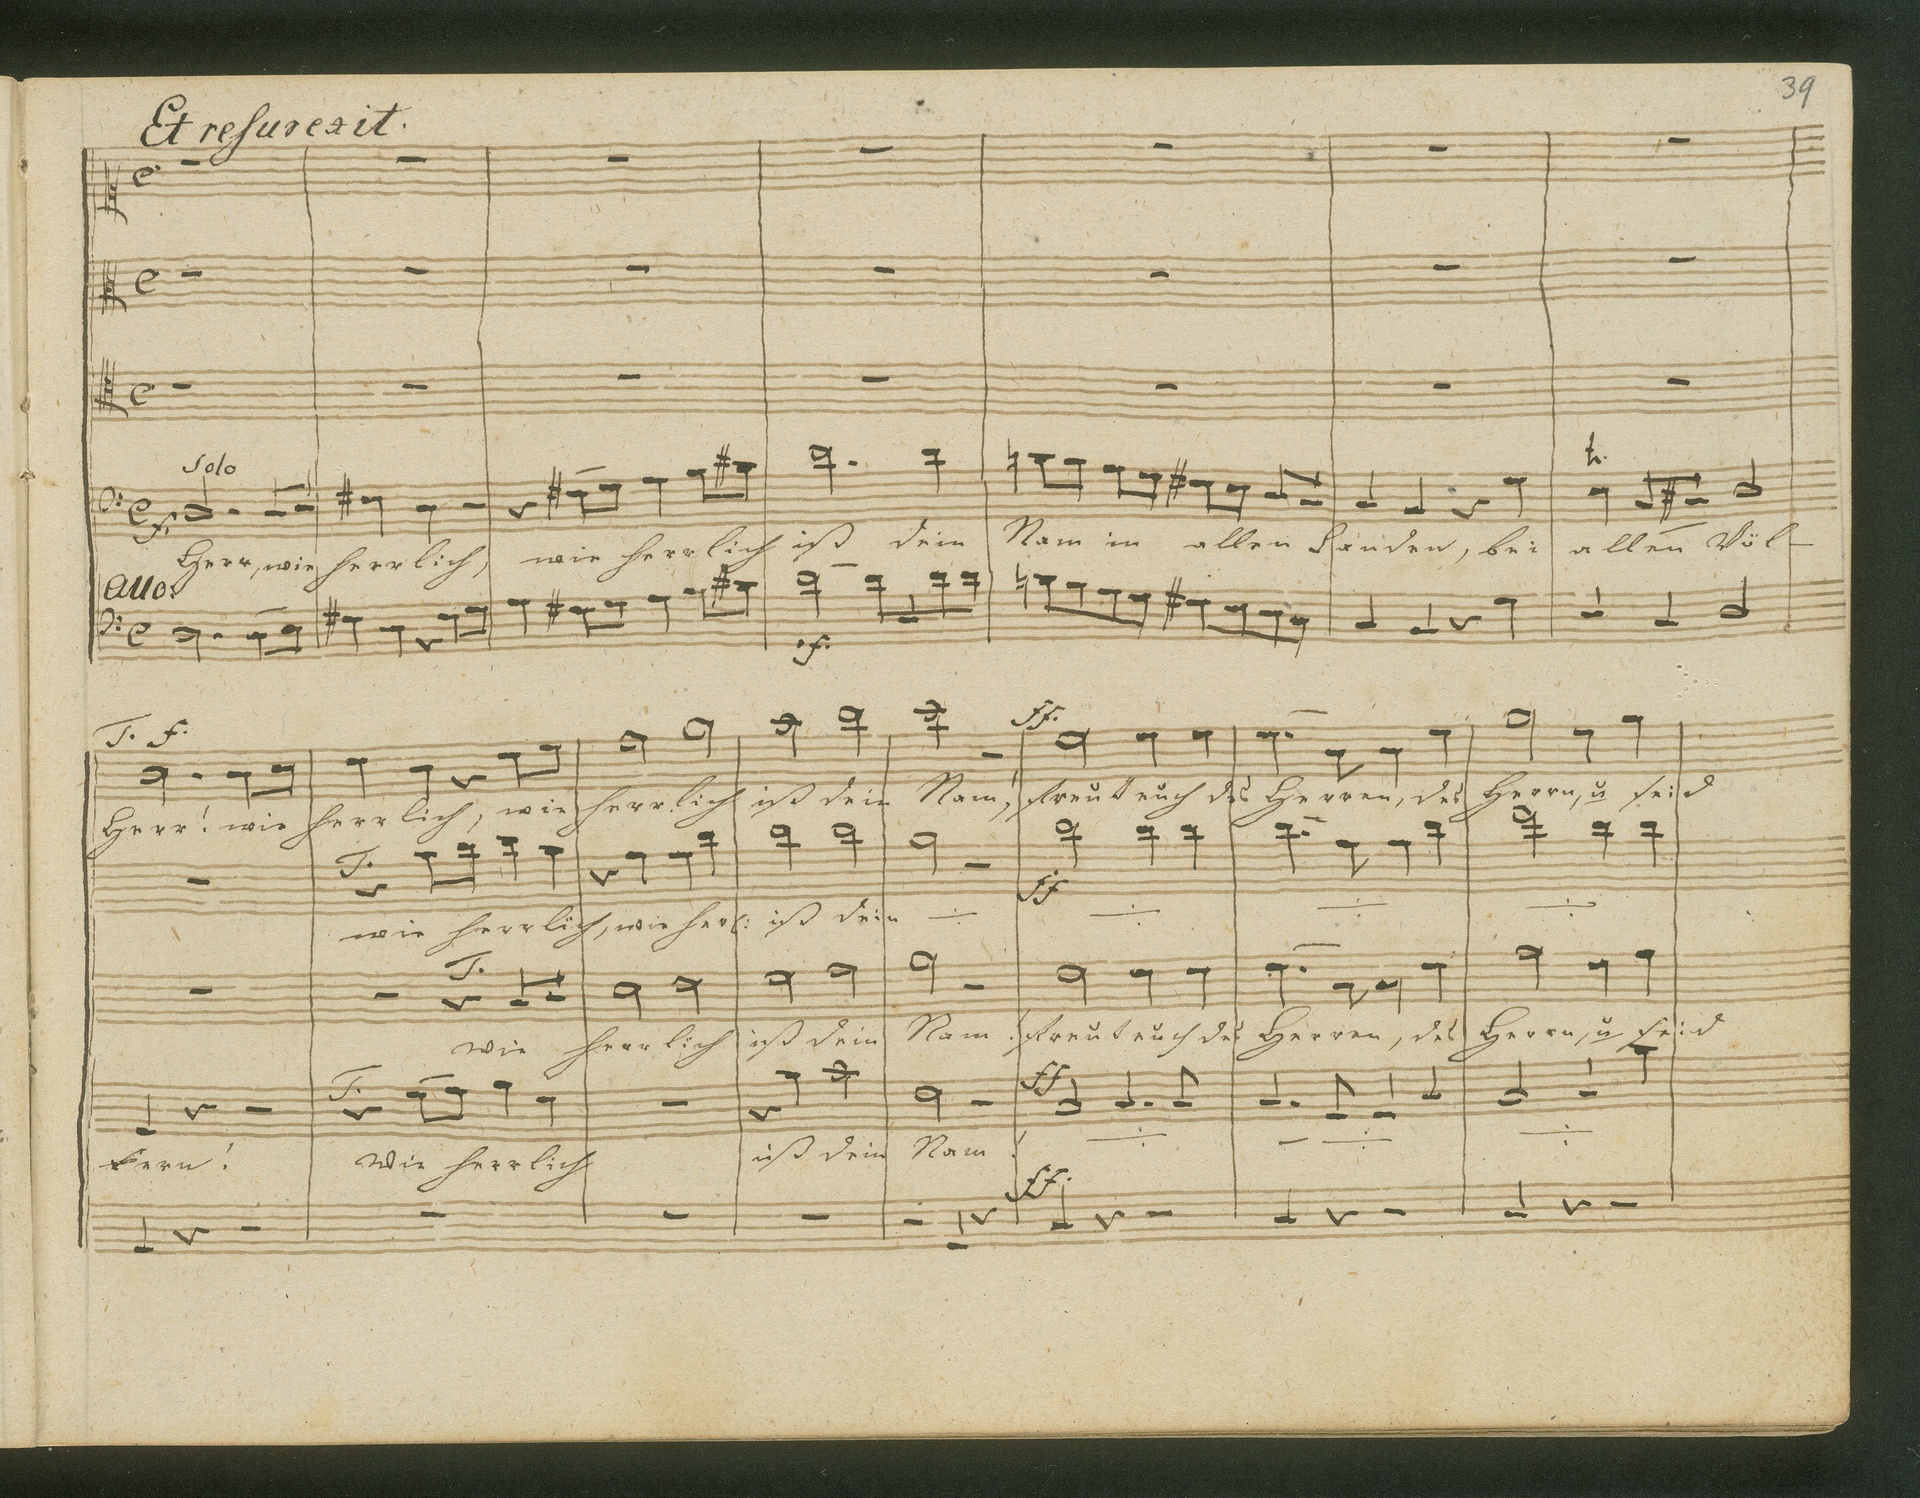 39
Et resurexit.
Solo
f.
Herr, wie herrlich, wie herrlich ist dein Nam in allen Landen, bei allen Völ-
Allo.
sf.
T. f. ff.
Herr! wie herrlich, wie herrlich ist dein Nam! freut euch des Herren, des Herrn, u seid
T. ff
wie herrlich, wie herl: ist dein
T.
wie herrlich ist dein Nam! freut euch des Herren, des Herrn, u seid
T. ff
kern! Wie herrlich ist dein Nam!
ff.